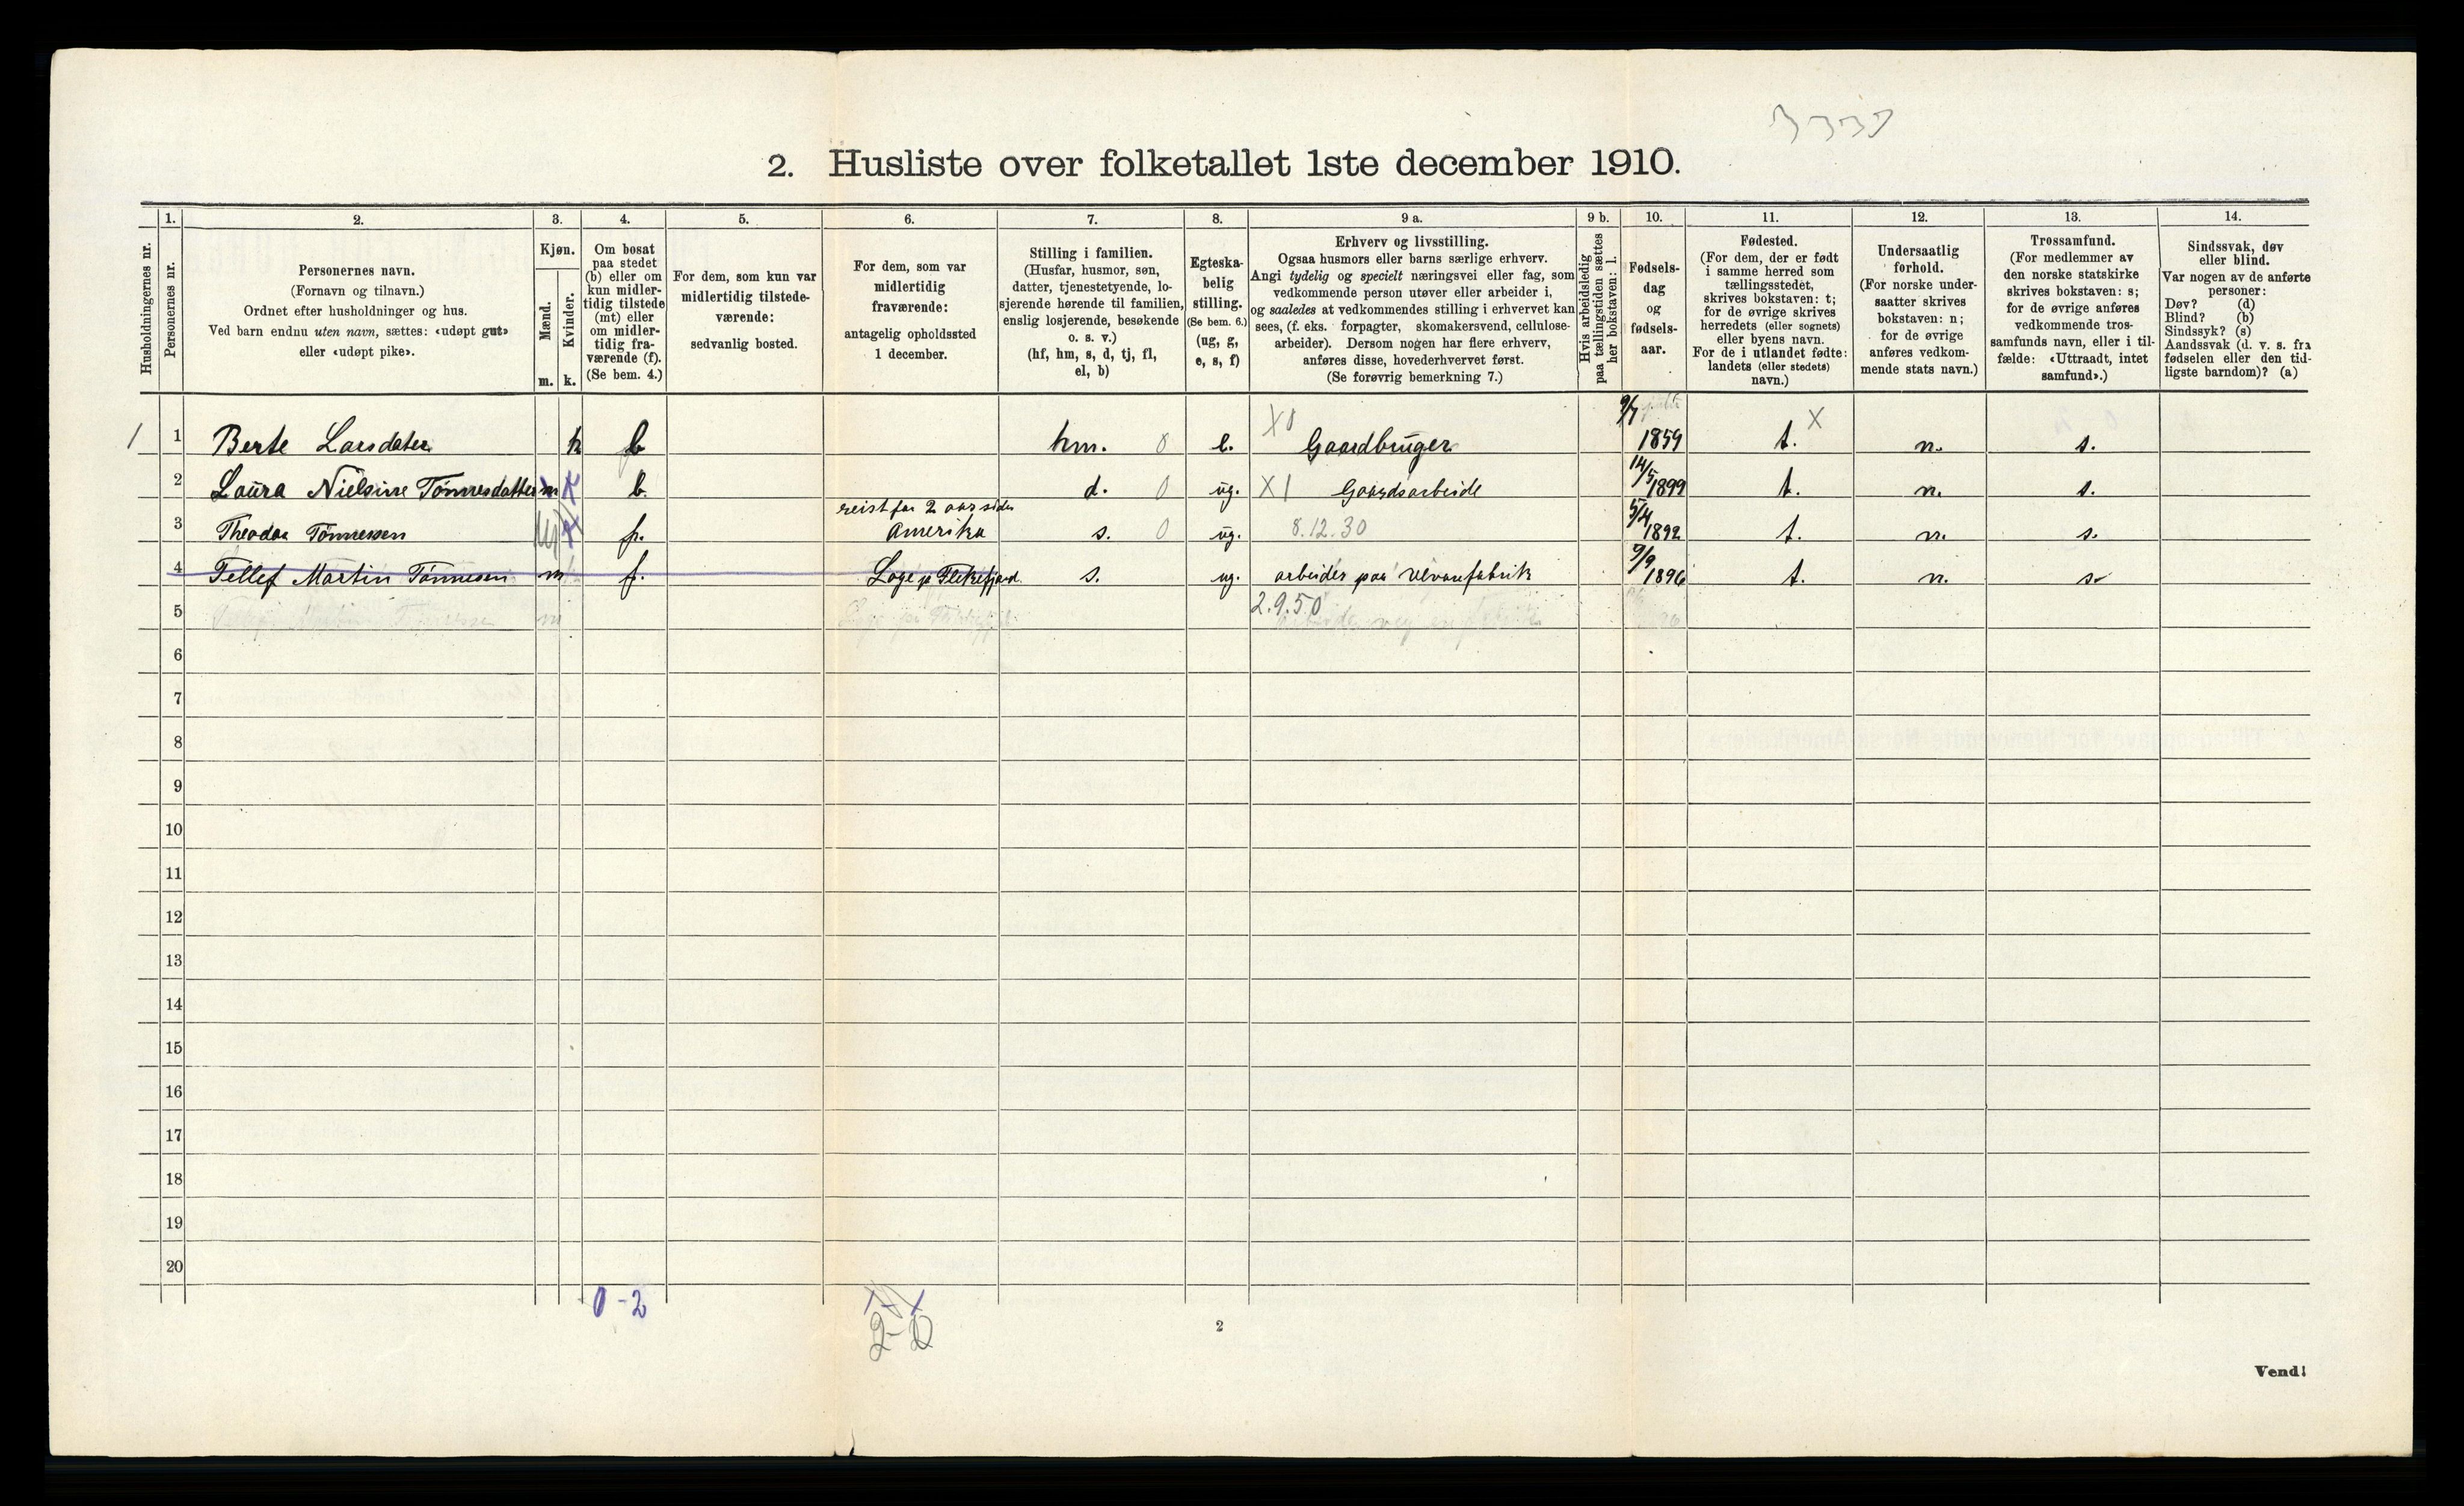 3333
2. Husliste over folketallet 1ste december 1910.
Husholdningernes nr.
1.
Personernes nr.
2.
Personernes navn.
(Fornavn og tilnavn.)
Ordnet efter husholdninger og hus.
Ved barn endnu uten navn, sættes: «udøpt gut»
eller «udøpt pike».
3.
Kjøn.
Mænd.
Kvinder.
m. k.
4.
Om bosat
paa stedet
(b) eller om
kun midler-
tidig tilstede
(mt) eller
om midler-
tidig fra-
værende (f).
(Se bem. 4.)
5.
For dem, som kun var
midlertidig tilstede-
værende:
sedvanlig bosted.
6.
For dem, som var
midlertidig
fraværende:
antagelig opholdssted
1 december.
7.
Stilling i familien.
(Husfar, husmor, søn,
datter, tjenestetyende, lo-
sjerende hørende til familien,
enslig losjerende, besøkende
o. s. v.)
(hf, hm, s, d, tj, fl,
el, b)
8.
Egteska-
belig
stilling.
(Se bem. 6.)
(ug, g,
e, s, f)
9 a.
Erhverv og livsstilling.
Ogsaa husmors eller barns særlige erhverv.
Angi tydelig og specielt næringsvei eller fag, som
vedkommende person utøver eller arbeider i,
og saaledes at vedkommendes stilling i erhvervet kan
sees, (f. eks. forpagter, skomakersvend, cellulose-
arbeider). Dersom nogen har flere erhverv,
anføres disse, hovederhvervet først.
(Se forøvrig bemerkning 7.)
9 b.
Hvis arbeidsledig
paa tællingstiden sættes
her bokstaven: l.
10.
Fødsels-
dag
og
fødsels-
aar.
11.
Fødested.
(For dem, der er født
i samme herred som
tællingsstedet,
skrives bokstaven: t;
for de øvrige skrives
herredets (eller sognets)
eller byens navn.
For de i utlandet fødte:
landets (eller stedets)
navn.)
12.
Undersaatlig
forhold.
(For norske under-
saatter skrives
bokstaven: n;
for de øvrige
anføres vedkom-
mende stats navn.)
13.
Trossamfund.
(For medlemmer av
den norske statskirke
skrives bokstaven: s;
for de øvrige anføres
vedkommende tros-
samfunds navn, eller i til-
fælde: «Uttraadt, intet
samfund».)
14.
Sindssvak, døv
eller blind.
Var nogen av de anførte
personer:
Døv? (d)
Blind? (b)
Sindssyk? (s)
Aandssvak (d. v. s. fra
fødselen eller den tid-
ligste barndom)? (a)
1 1 Berte Larsdater k b hm. 0 e. X0 Gaardbruger 9/7 1859 t. X n. s.
2 Laura Nielsine Tønnesdatter m k b. d. 0 ug. X1 Gaardsarbeide 14/5 1899 t. n. s.
3 Theodor Tønnessen m k f. reist for 2 aar siden Amerika s. 0 ug. 8.12.30 5/4 1892 t. n. s.
4 Tellef Martin Tønnesen m f. Loge p Flekefjord. s. ug. arbeider paa Ulvarefabrik 9/9 1896 t. n. s.
5 2.9.50
6
7
8
9
10
11
12
13
14
15
16
17
18
19
20
0-2
2-0
2
Vend!